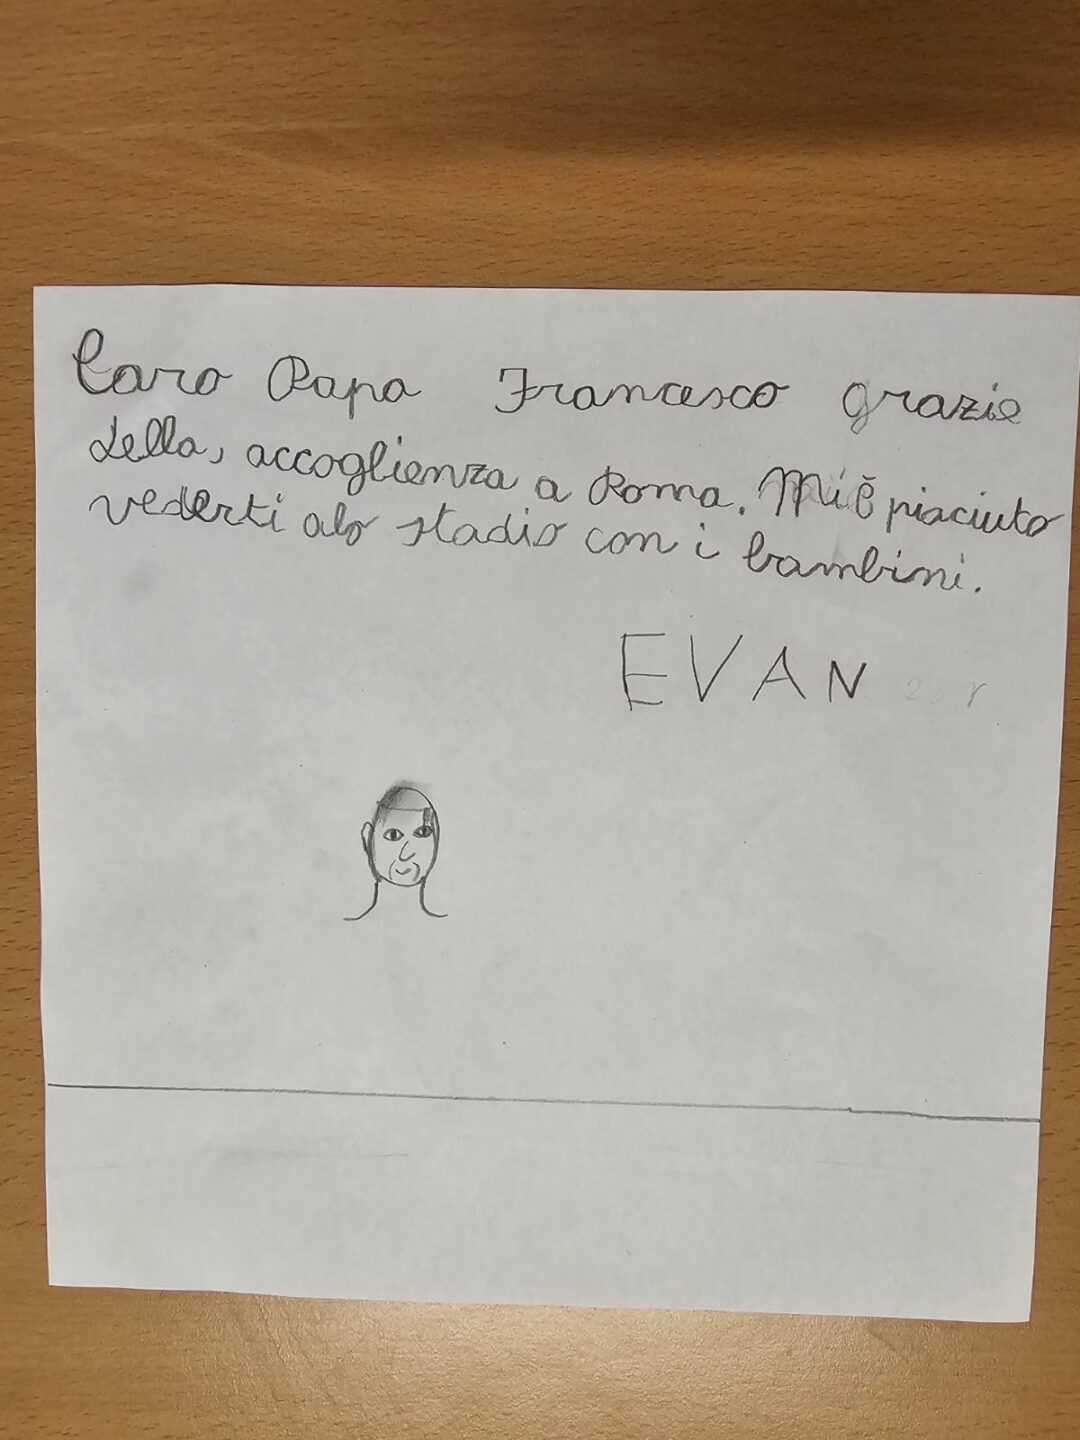 Caro Papa Francesco grazie
della, accoglienza a Roma. Mi è piaciuto
vederti alo stadio con i bambini.
EVAN